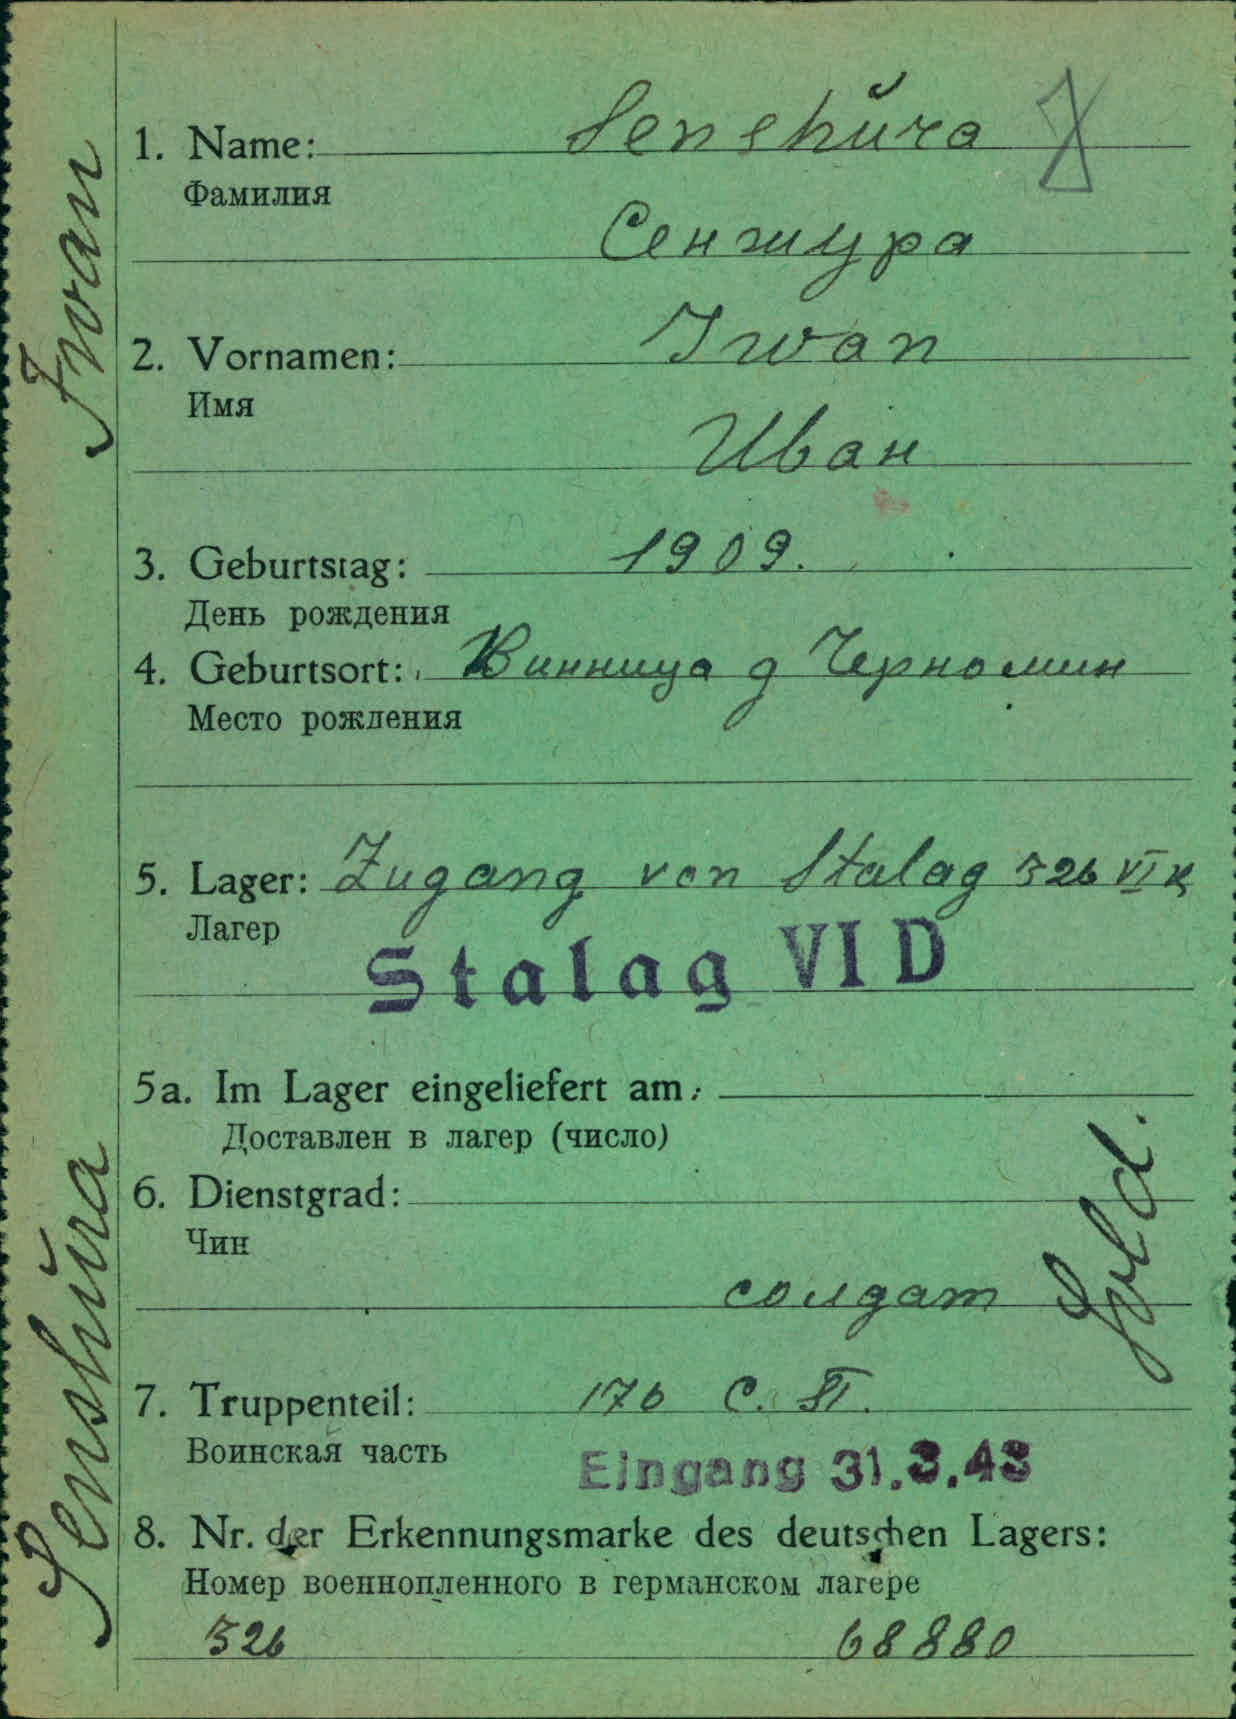 1. Name: Senshŭra
Фамилия
Сенжура
2. Vornamen: Iwan
Имя
Иван
3. Geburtstag: 1909.
День рождения
4. Geburtsort: Винница д Черномин
Место рождения
5. Lager: Zugang von Stalag 326 VI K
Лагер
Stalag VI D
5a. Im Lager eingeliefert am:
Доставлен в лагер (число)
6. Dienstgrad:
Чин
солдат Sold.
7. Truppenteil: 176 С. П.
Воинская часть
Eingang 31.3.43
8. Nr. der Erkennungsmarke des deutschen Lagers:
Номер военнопленного в германском лагере
326 68880
Senshŭra Iwan